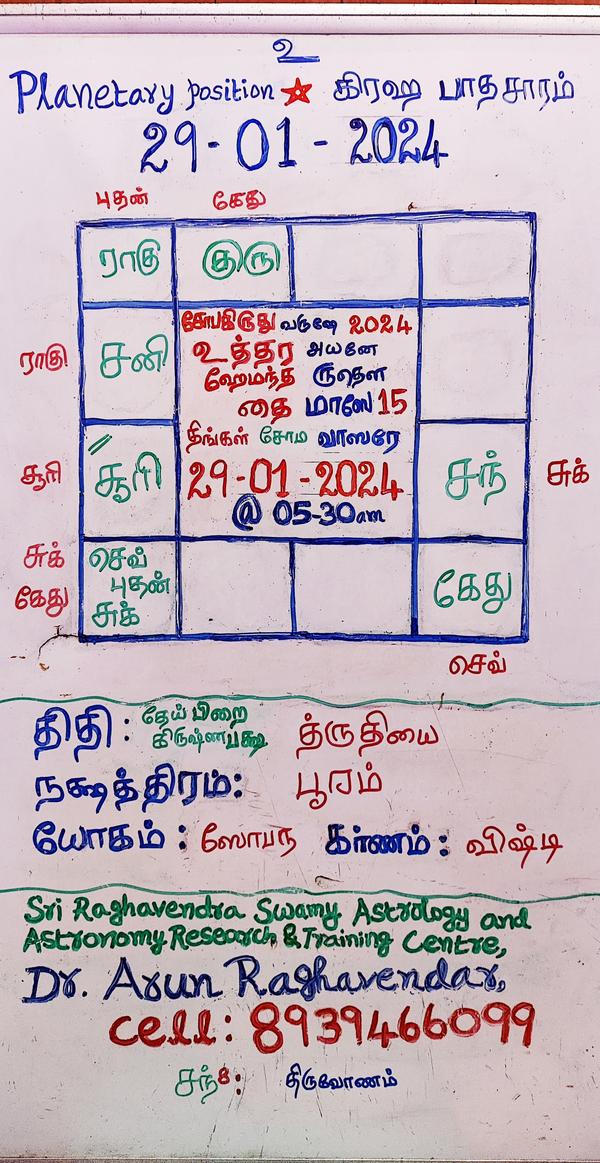 உ
Planetary position ★ கிரஹ பாதசாரம்
29-01-2024
புதன் கேது
ராகு குரு
சோபகிருது வருஷே 2024
உத்தர அயனே
ஹேமந்த ருதௌ
தை மாஸே 15
திங்கள் சோம வாஸரே
29-01-2024
@ 05-30am
ராகு சனி
சூரி சூரி
சந் சுக்
சுக் செவ்
புதன்
கேது சுக்
கேது
செவ்
திதி : தேய் பிறை
கிருஷ்ணபக்ஷ த்ருதியை
நக்ஷத்திரம்: பூரம்
யோகம் : ஸோபந கர்ணம் : விஷ்டி
Sri Raghavendra Swamy Astrology and
Astronomy Research & Training Centre,
Dr. Arun Raghavendar,
Cell: 8939466099
சந்8: திருவோணம்